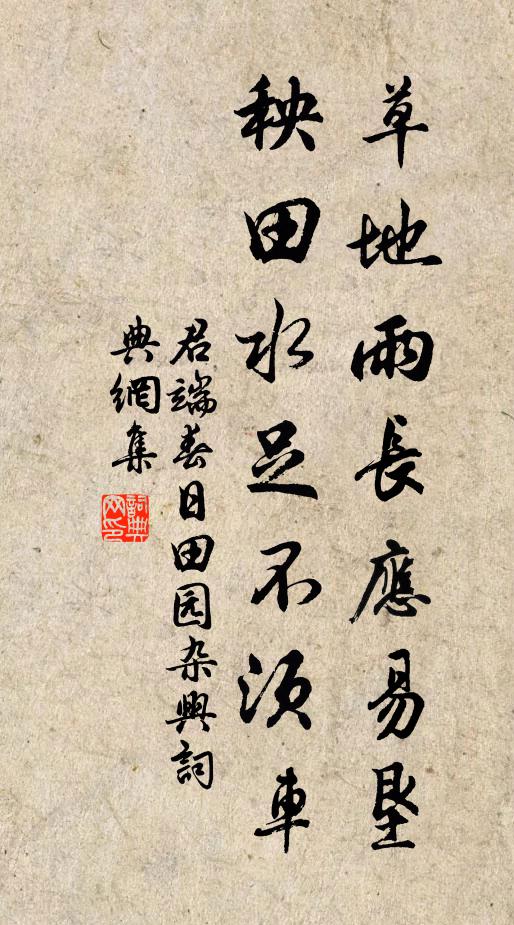 草地雨長應易垦
秧田水足不須車
君端春日田园杂興詞
典網集
詞典网印